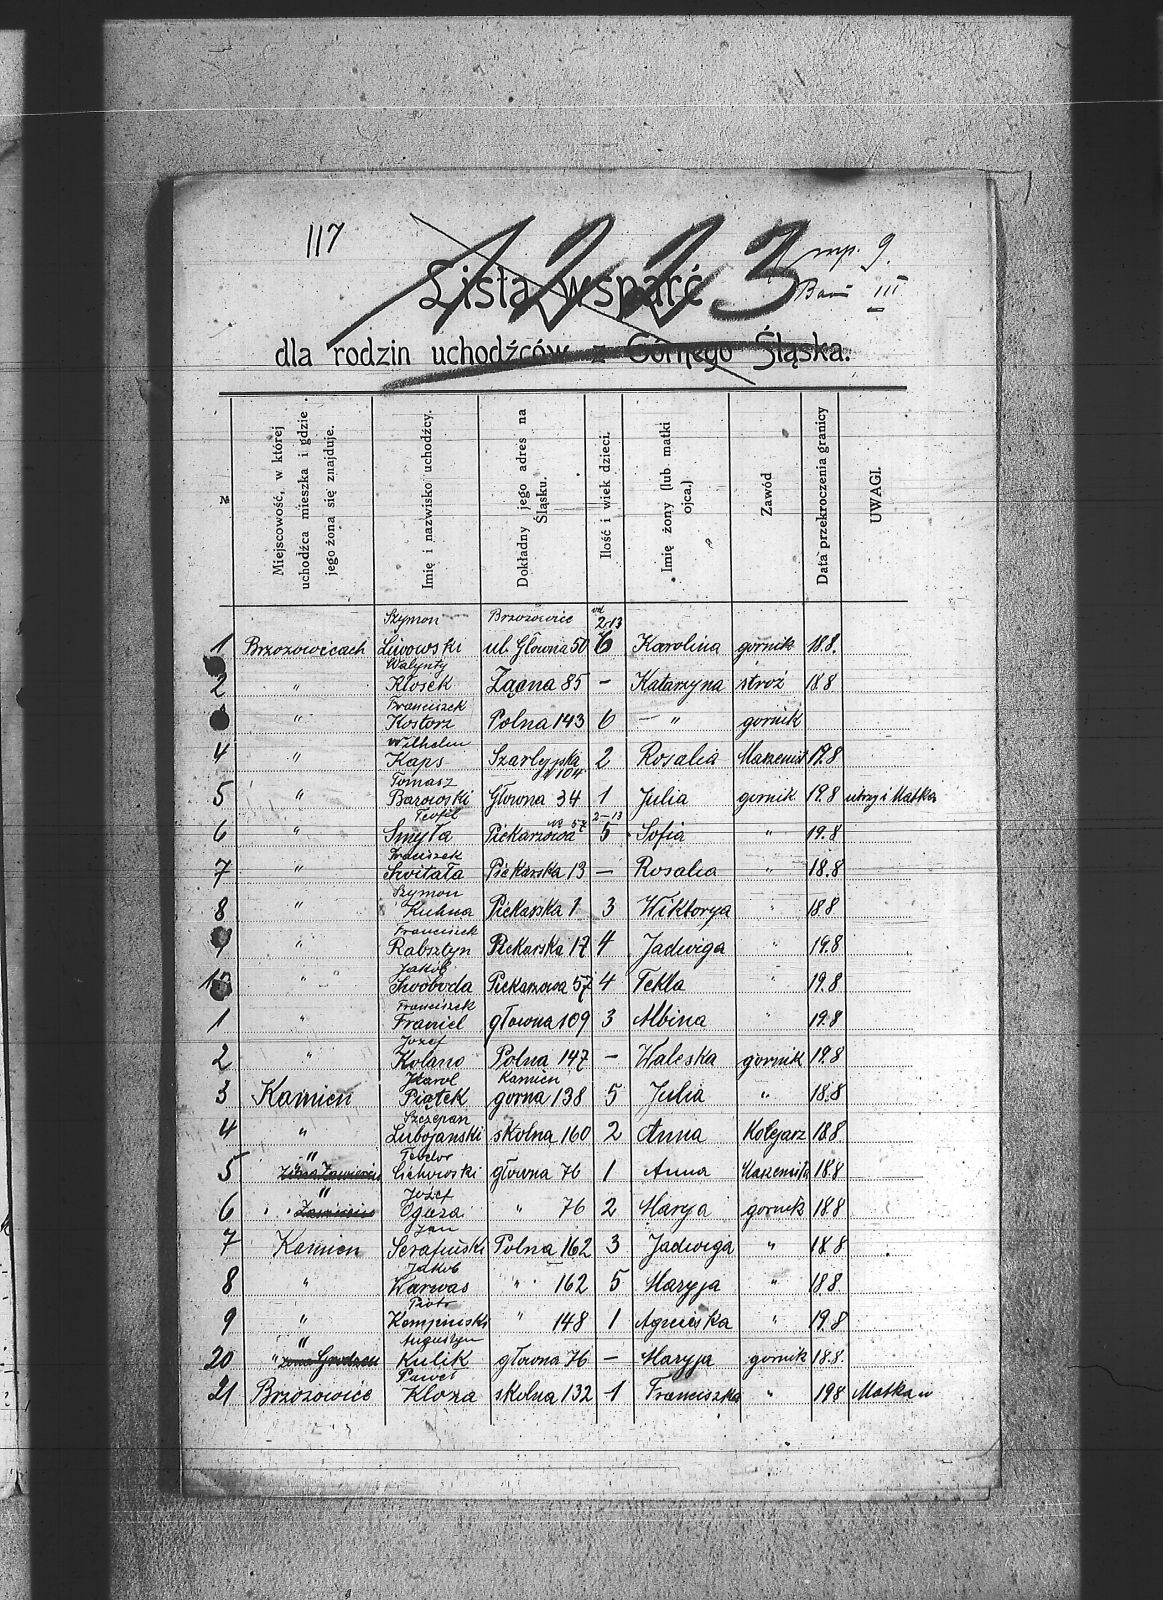 117
1223
mp. 9.
III
Lista wsparć
dla rodzin uchodźców z Górnego Śląska.
№
Miejscowość, w której uchodźca mieszka i gdzie jego żona się znajduje.
Imię i nazwisko uchodźcy.
Dokładny jego adres na Śląsku.
Ilość i wiek dzieci.
Imię żony (lub matki ojca.)
Zawód
Data przekroczenia granicy
UWAGI.
Szymon Brzozowice od 2-13
1 Brzozowicach Lwowski ul Głowna 50 6 Karolina gornik 18.8.
Walynty
2 " Kłosek Łącna 85 - Katarzyna stroż 18.8
Franciszek
" Kostorz Polna 143 6 - " gornik
Wilhelm
4 " Kaps Szarlejska 104 2 Rosalia Maszenist 19.8
Tomasz
5 " Barowski Głowna 34 1 Julia gornik 19.8 utrzy i Matka
Teofil № 57 2-13
6 " Smyła Piekarzowa 5 Sofia " 19.8
Franciszek
7 " Switała Piekarska 13 - Rosalia " 18.8
Szymon
8 " Kuhna Piekarska 1 3 Wiktorya " 18.8
Franciszek
9 " Rabsztyn Piekarska 17 4 Jadwiga " 19.8
Jakob
10 " " Swoboda Piekarzowa 57 4 Tekla " 19.8
Franciszek
1 " Framiel głowna 109 3 Albina " 19.8
Jozef
2 " Kolano Polna 147 - Waleska gornik 19.8
Karol Kamien
3 Kamień Piątek gorna 138 5 Julia " 18.8
Szczepan
4 " Lubojanski skolna 160 2 Anna Kolejarz 18.8
" Teodor
5 Cichowski głowna 76 1 Anna Maszenista 18.8
" Jozef
6 Ogaza " 76 2 Marya gornik 18.8
Jan
7 Kamien Serafinski Polna 162 3 Jadwiga " 18.8
Jakob
8 " Karwas " 162 5 Maryja " 18.8
Piotr
9 " Kempinski " 148 1 Agnieska " 19.8
" Augustyn
20 " zona Grodziec Kulik głowna 76 - Maryja gornik 18.8.
Paweł
21 Brzozowice Kloza skolna 132 -1 Franciszka " 19.8 Matka w